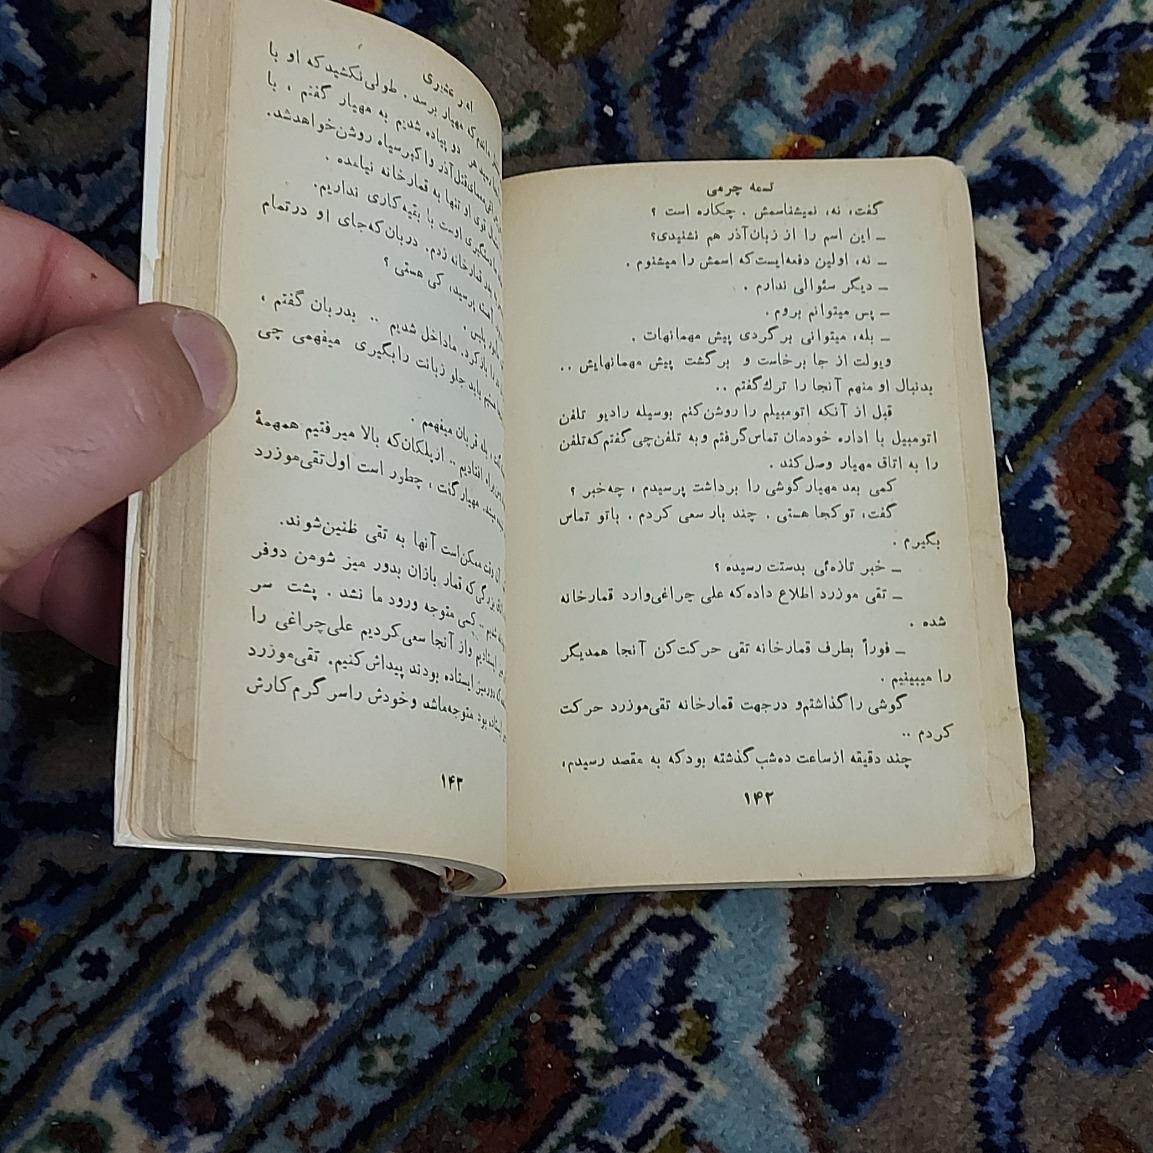 تسمه چرمی
گفت، نه، نمیشناسمش . چکاره است ؟
ـ این اسم را از زبان آذر هم نشنیدی؟
ـ نه، اولین دفعه‌ایست که اسمش را میشنوم .
ـ دیگر سئوالی ندارم .
ـ پس میتوانم بروم .
ـ بله، میتوانی برگردی پیش مهمانهات .
ویولت از جا برخاست و برگشت پیش مهمانهایش ..
بدنبال او منهم آنجا را ترك گفتم ..
قبل از آنکه اتومبیلم را روشن کنم بوسیله رادیو تلفن
اتومبیل با اداره خودمان تماس گرفتم و به تلفن‌چی گفتم که تلفن
را به اتاق مهیار وصل کند .
کمی بعد مهیار گوشی را برداشت پرسیدم ، چه‌خبر ؟
گفت، تو کجا هستی . چند بار سعی کردم . باتو تماس
بگیرم .
ـ خبر تازه‌ئی بدستت رسیده ؟
ـ تقی موزرد اطلاع داده که علی چراغی وارد قمارخانه
شده .
ـ فوراً بطرف قمارخانه تقی حرکت کن آنجا همدیگر
را میبینیم .
گوشی را گذاشتم و درجهت قمارخانه تقی‌موزرد حرکت
کردم ..
چند دقیقه از ساعت ده‌شب گذشته بود که به مقصد رسیدم،
۱۴۲
امیر عشیری
که مهیار برسد . طولی نکشید که او با
هر دو پیاده شدیم به مهیار گفتم ، با
معمای قتل آذر و اکبرسیاه روشن خواهدشد.
او تنها به قمارخانه نیامده .
دستگیری اوست با بقیه کاری نداریم.
قمارخانه زدم. دربان که جای او درتمام
پرسید، کی هستی ؟
باز کرد. ماداخل شدیم .. بدربان گفتم ،
باید جلو زبانت را بگیری میفهمی چی
بله قربان میفهمم .
افتادیم .. از پلکان که بالا میرفتیم همهمهٔ
مهیار گفت ، چطور است اول تقی‌موزرد
آن وقت ممکن است آنها به تقی ظنین شوند.
بزرگی که قمار بازان بدور میز شومن دوفر
کسی متوجه ورود ما نشد . پشت سر
ایستادیم و از آنجا سعی کردیم علی چراغی را
دورمیز ایستاده بودند پیداش کنیم. تقی‌موزرد
بود متوجه‌ماشد وخودش راسر گرم کارش
۱۴۳